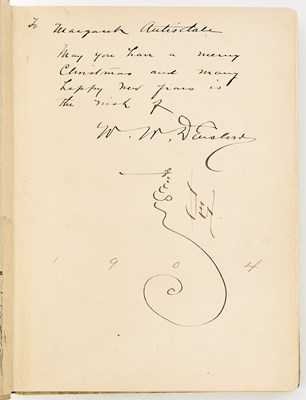 To Margaret
May you have a merry
Christmas and many
happy new years is
the wish of
W. W.
1904